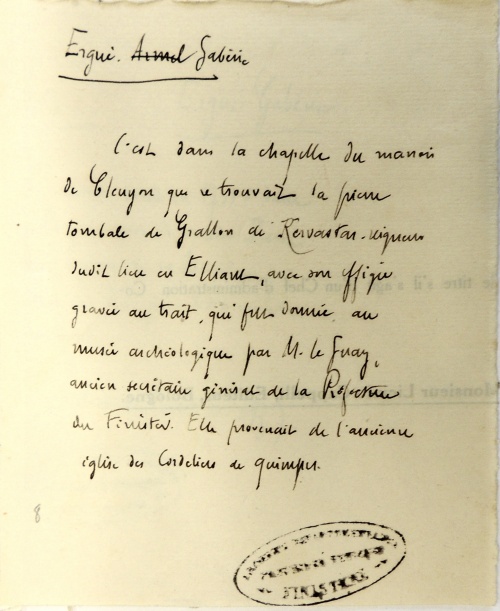 Ergué. Armel Gabéric
C'est dans la chapelle du manoir
de Cleuyou que se trouvait la pierre
tombale de Grallon de Kervastar, seigneur
dudit lieu en Elliant, avec son effigie
gravée au trait, qui fut donnée au
musée archéologique par M. le Guay,
ancien secrétaire général de la Préfecture
du Finistère. Elle provenait de l'ancienne
église des Cordeliers de Quimper.
8
FINISTÈRE